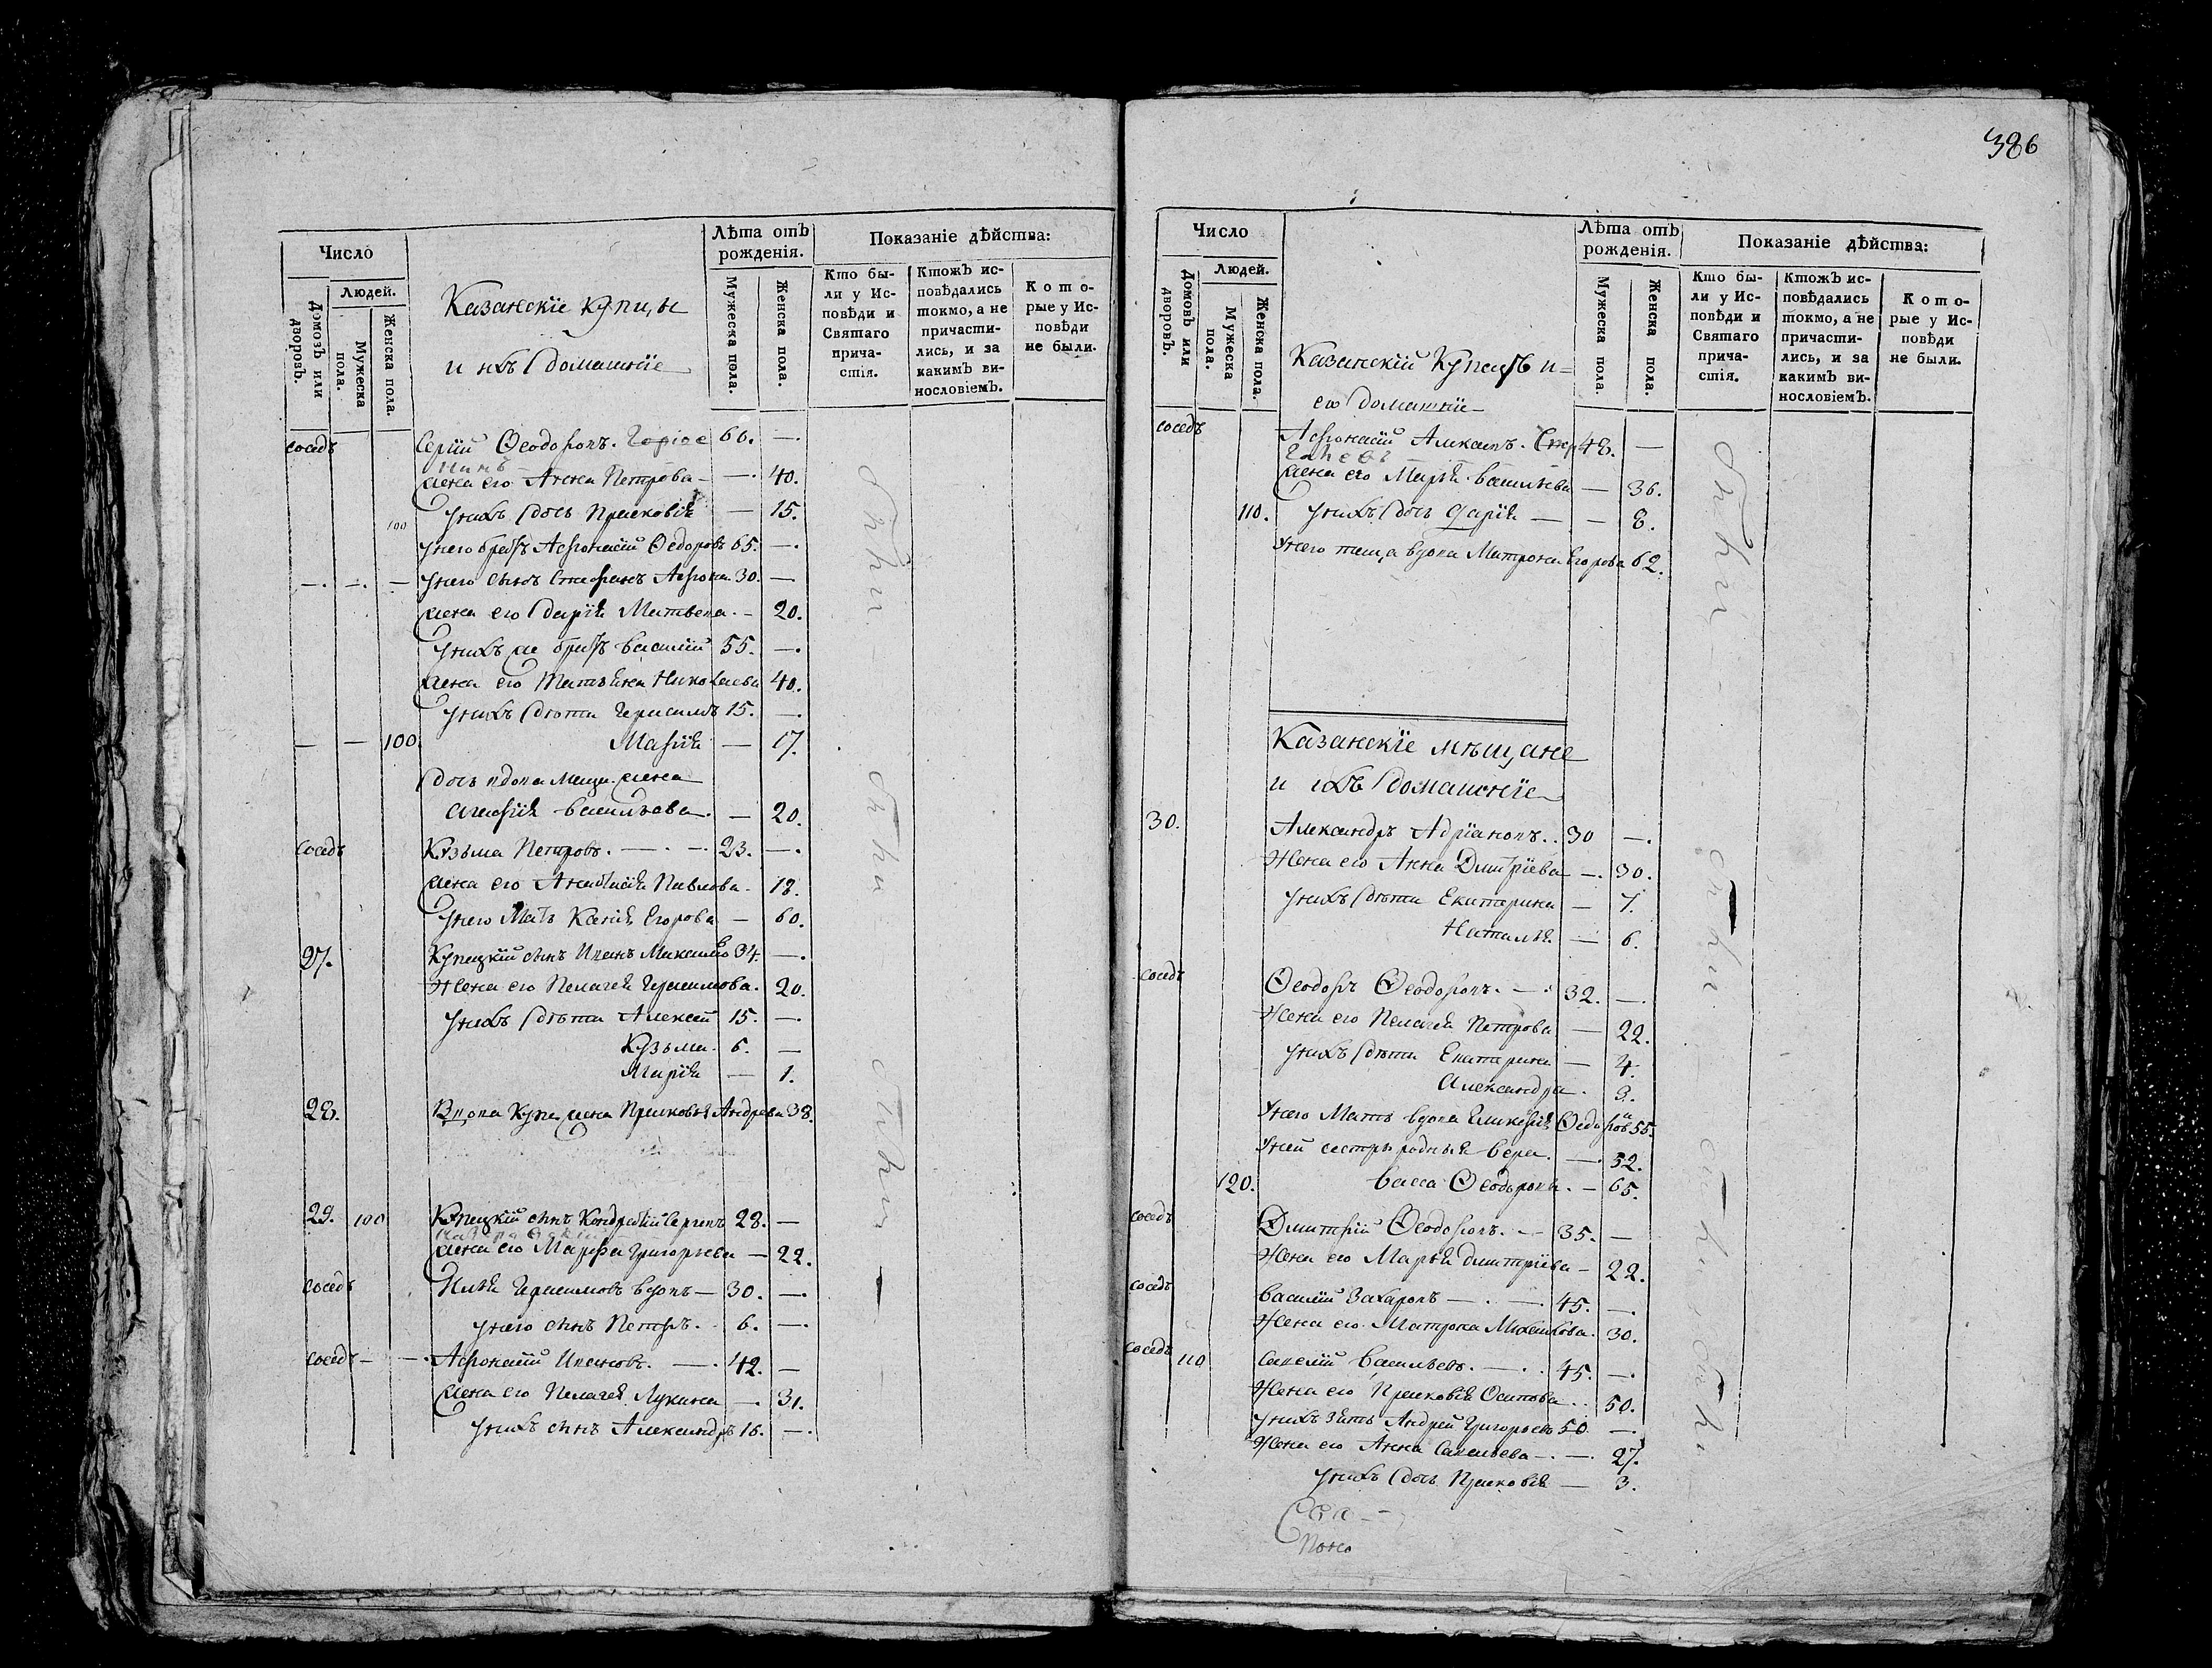 386
Число
Людей.
Домовъ или дворовъ.
Мужеска пола.
Женска пола.
Казанскіе купцы
и ихъ домашніе
Лѣта отъ рожденія.
Мужеска пола.
Женска пола.
Показаніе дѣйства:
Кто были у Исповѣди и Святаго причастія.
Ктожъ исповѣдались токмо, а не причастились, и за какимъ винословіемъ.
Которые у Исповѣди не были.
соседъ Сергій Ѳеодоровъ. 60. —.
жена его Анна Петрова — —. 40.
100 у нихъ дочь Прасковія — 15.
у него братъ Афонасій Ѳедоровъ 65. —.
—. —. — у него сынъ Стефанъ Афона. 30. —
жена его Дарія Матвева. — 20.
у нихъ же братъ Василій 55. —.
жена его Татьяна Николаева 40.
у нихъ дѣти Герасимъ 15. —.
— — 100. Марія — 17.
дочь вдова жена
Васильева. — 20.
соседъ Кузьма Петровъ. —. —. 23. —.
жена его Павлова. 18.
у него Мать Егорова — 60.
27. Купецкій сынъ Иванъ 34. —.
Жена его Пелагея Герасимова. 20.
у нихъ дѣти Алексей 15. —.
Кузьма. 6. —
Марія — 1.
28. Вдова жена Прасковья Андрева 38.
29. 100 Купецкій сынъ Кондратій Сергевъ 28. —
жена его Марфа Григорьева — 22.
соседъ Илья Герасимовъ вдовъ — 30. —.
у него сынъ Петръ. 6. —.
соседъ — —. Афонасій Ивановъ. —. 42. —
жена его Пелагея Лукина —. 31.
у нихъ сынъ Александръ 16. —.
Число
Людей.
Домовъ или дворовъ.
Мужеска пола.
Женска пола.
Казанскій Купецъ и
его домашніе
Лѣта отъ рожденія.
Мужеска пола.
Женска пола.
Показаніе дѣйства:
Кто были у Исповѣди и Святаго причастія.
Ктожъ исповѣдались токмо, а не причастились, и за какимъ винословіемъ.
Которые у Исповѣди не были.
соседъ Афонасій 48. —
жена его Марья Васильева — 36.
110. у нихъ дочь Дарія — — 8.
у него теща вдова Матрона Егорова 62.
Казанскіе мѣщане
и ихъ домашніе
30. Александръ Адріановъ.. 30 —.
Жена его Анна Дмитріева —. 30.
у нихъ дѣти Екатерина — 7.
Наталья — 6.
соседъ Ѳеодоръ Ѳеодоровъ. —. 32. —.
Жена его Пелагея Петрова — 22.
у нихъ дѣти Екатерина — 4.
Александра. 3.
у него Мать вдова Гликерія Ѳедорова 55.
у ней сестры родныя Вера. —. 52.
120. Васса Ѳеодорова. — 65.
соседъ Дмитрій Ѳеодоровъ. — 35. —
Жена его Марья Дмитріева — 22.
соседъ Василій Захаровъ —. —. 45. —.
Жена его Матрона Михайлова. 30.
соседъ 110 Савелій Васильевъ. —. 45. —.
Жена его Прасковія Осипова.. 50.
у нихъ зять Андрей Григорьевъ 50 —.
Жена его Анна Савельева —. —. 27.
у нихъ дочь Прасковія — 3.